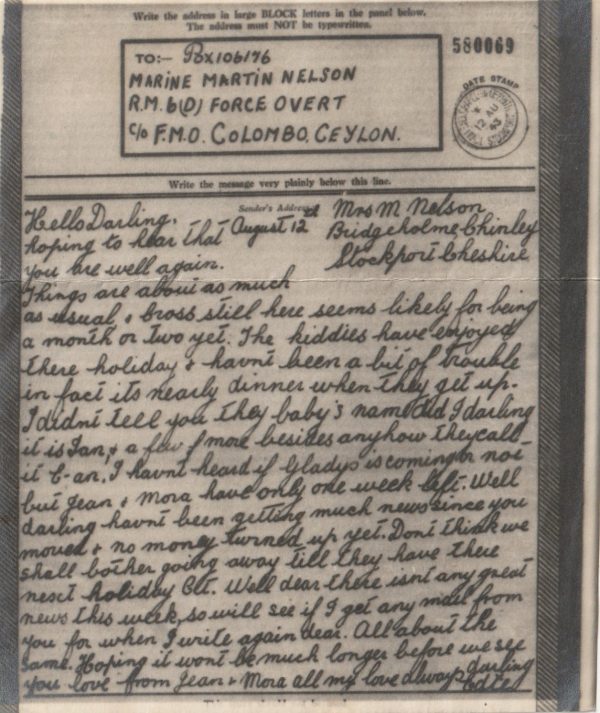 Write the address in large BLOCK letters in the panel below.
The address must NOT be typewritten.
TO:— Pox106176
MARINE MARTIN NELSON
R.M. 6(D) FORCE OVERT
C/o F.M.O. COLOMBO, CEYLON.
580069
DATE STAMP
12 AU
43
Write the message very plainly below this line.
Sender's Address
Mrs M Nelson
Bridgeholme Chinley
Stockport Cheshire
August 12th
Hello Darling,
hoping to hear that
you are well again.
Things are about as much
as usual, & Cross still here seems likely for being
a month or two yet. The kiddies have enjoyed
there holiday & havnt been a bit of trouble
in fact its nearly dinner when they get up.
I didnt tell you they baby's name did I darling
it is Ian, & a few more besides anyhow they call
it E-an. I havnt heard if Gladys is coming or not
but Jean & Mora have only one week left. Well
darling havnt been getting much news since you
moved & no money turned up yet. Dont think we
shall bother going away till they have there
next holiday Oct. Well dear there isnt any great
news this week, so will see if I get any mail from
you for when I write again dear. All about the
same. Hoping it wont be much longer before we see
you love from Jean & Mora all my love always darling